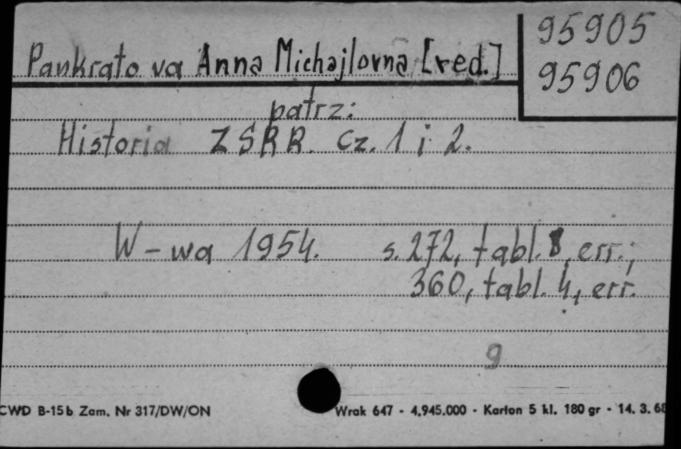 95905
Pankratova Anna Michajlovna [red.]
95906
patrz:
Historia ZSRR. Cz. 1 i 2.
W-wa 1954. s. 272, tabl. 8, err.;
360, tabl. 4, err.
9
CWD B-15b Zam. Nr 317/DW/ON Wrak 647 - 4,945.000 - Karton 5 kl. 180 gr - 14. 3. 68